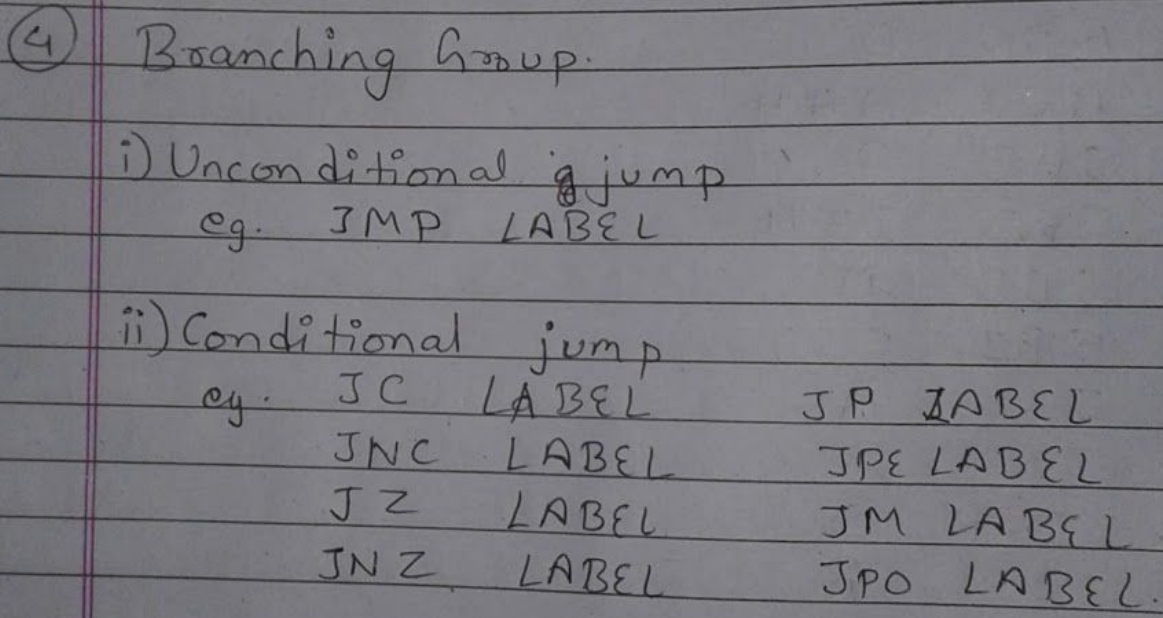 4 Branching Group.
i) Unconditional jump
eg. JMP LABEL
ii) Conditional jump
eg. JC LABEL JP LABEL
JNC LABEL JPE LABEL
JZ LABEL JM LABEL
JNZ LABEL JPO LABEL.